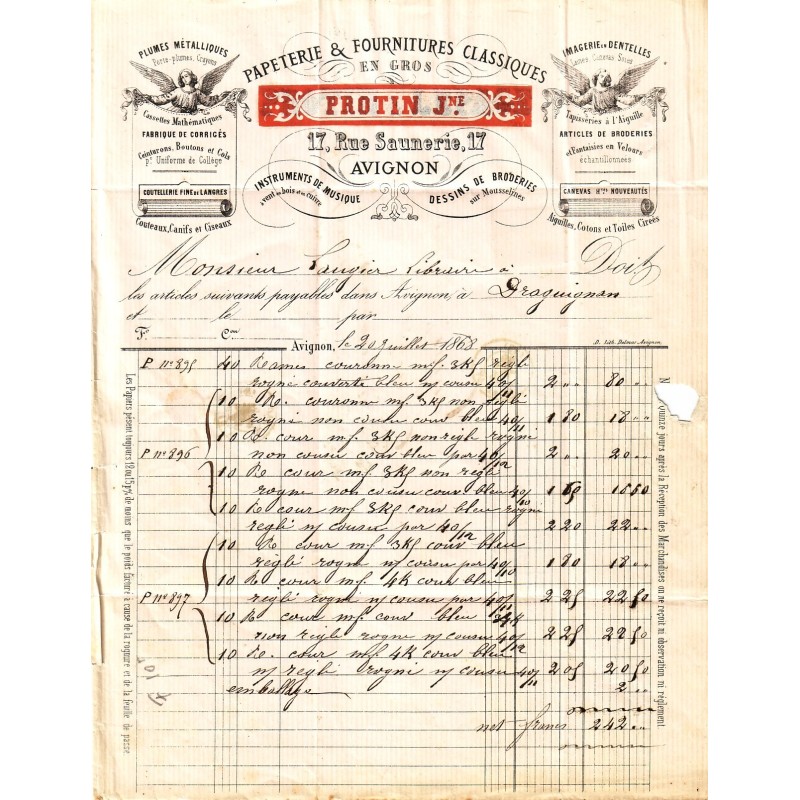 PLUMES MÉTALLIQUES
Porte-plumes, Crayons
Cassettes Mathématiques
FABRIQUE DE CORRIGÉS
Ceinturons, Boutons et Cols
pr. Uniforme de Collège
COUTELLERIE FINE DE LANGRES
Couteaux, Canifs et Ciseaux
PAPETERIE & FOURNITURES CLASSIQUES
EN GROS
PROTIN JNE.
17, Rue Saunerie, 17
AVIGNON
INSTRUMENTS DE MUSIQUE
à vent en bois et en cuivre
DESSINS DE BRODERIES
sur Mousselines
IMAGERIE EN DENTELLES
Laines, Canevas, Soies
Tapisseries à l'Aiguille
ARTICLES DE BRODERIES
et Fantaisies en Velours
échantillonnées
CANEVAS Htes NOUVEAUTÉS
Aiguilles, Cotons et Toiles Cirées
Monsieur Laugier Libraire à Doit
les articles suivants payables dans Avignon, à Draguignan
et le par
Fo Con
Avignon, le 20 Juillet 1868
D. Lith. Avignon.
P n° 895 40 Rames couronne mf. 3K5 réglé
rogné couverte bleu n/ cousu 40/ 2 " 80 "
10 R. couronne mf. 3K5 non réglé
rogné non cousu couv bleu 40/ 1 80 18 "
10 R. cour mf. 3K5 non réglé rogné
P n° 896 non cousu couv bleu par 40/ 2 " 20 "
10 R cour mf. 3K5 non réglé
rogné non cousu couv bleu 40/ 18 50
10 R cour mf. 3K5 couv bleu rogné
réglé n/ cousu par 40/ 2 20 22 "
10 R cour mf. 3K5 couv bleu
réglé rogné n/ cousu par 40/ 1 80 18 "
10 R cour mf. 4K couv bleu
P n° 897 réglé rogné n/ cousu par 40/ 2 25 22 50
10 R cour mf. couv bleu 4K
non réglé rogné n/ cousu 40/ 2 25 22 50
10 R. cour mf. 4K couv bleu
n/ réglé rogné n/ cousu 40/ 2 05 20 50
emballage 2 "
net francs 242 "
Les Papiers pèsent toujours 12 ou 15 p% de moins que le poids facturé à cause de la rognure et de la feuille de passe.
quinze jours après la Réception des Marchandises on ne reçoit ni observation ni règlement